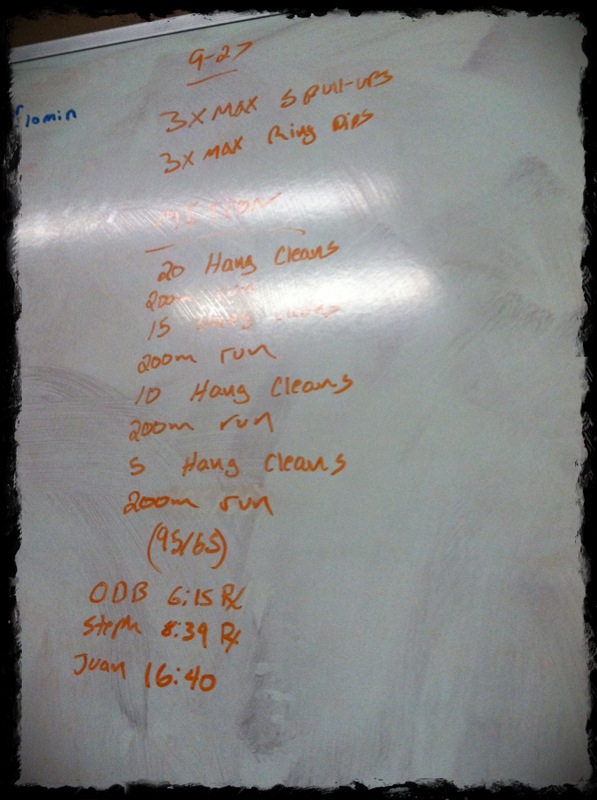 9-27
10min
3x max s pull-ups
3x max Ring Dips
METCON
20 Hang Cleans
200m run
15 Hang Cleans
200m run
10 Hang Cleans
200m run
5 Hang Cleans
200m run
(95/65)
ODB 6:15 Rx
Steph 8:39 Rx
Juan 16:40